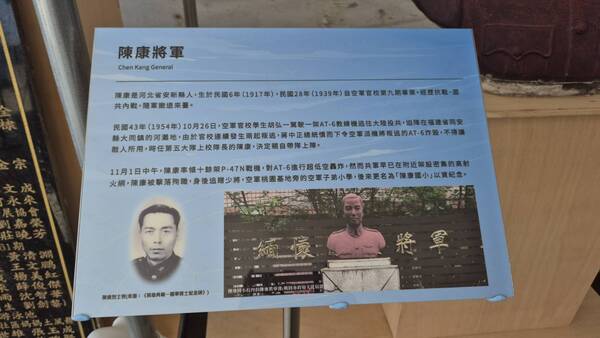 陳康將軍
Chen Kang General
陳康是河北省安新縣人，生於民國6年（1917年），民國28年（1939年）自空軍官校第九期畢業，經歷抗戰、國
共內戰，隨軍撤退來臺。
民國43年（1954年）10月26日，空軍官校學生胡弘一駕駛一架AT-6教練機逃往大陸投共，迫降在福建省同安
縣大同鎮的河灘地，由於官校連續發生兩起叛逃，蔣中正總統憤而下令空軍派機將叛逃的AT-6炸毀，不得讓
敵人所用，時任第五大隊上校隊長的陳康，決定親自帶隊上陣。
11月1日中午，陳康率領十餘架P-47N戰機，對AT-6進行超低空轟炸，然而共軍早已在附近架設密集的高射
火網，陳康被擊落殉職，身後追贈少將，空軍桃園基地旁的空軍子弟小學，後來更名為「陳康國小」以資紀念。
緬懷 將軍